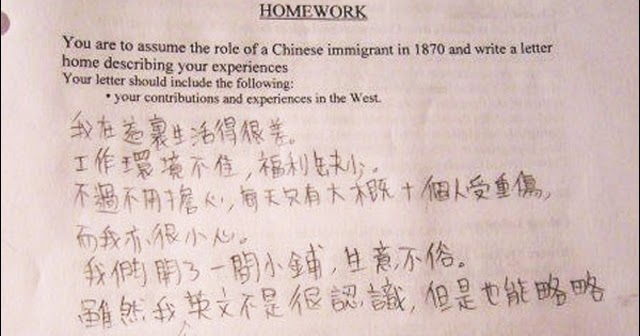 HOMEWORK
You are to assume the role of a Chinese immigrant in 1870 and write a letter
home describing your experiences
Your letter should include the following:
• your contributions and experiences in the West.
我在這裏生活得很差。
工作環境不佳,福利缺少。
不過不用擔心,每天只有大概十個人受重傷,
而我亦很小心。
我們開了一間小鋪,生意不俗。
雖然我英文不是很認識,但是也能略略